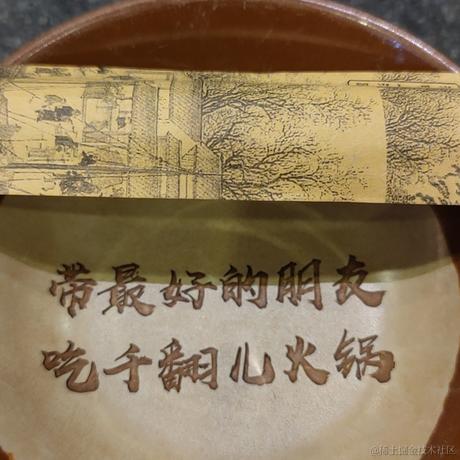 带最好的朋友
吃千翻儿火锅
@稀土掘金技术社区